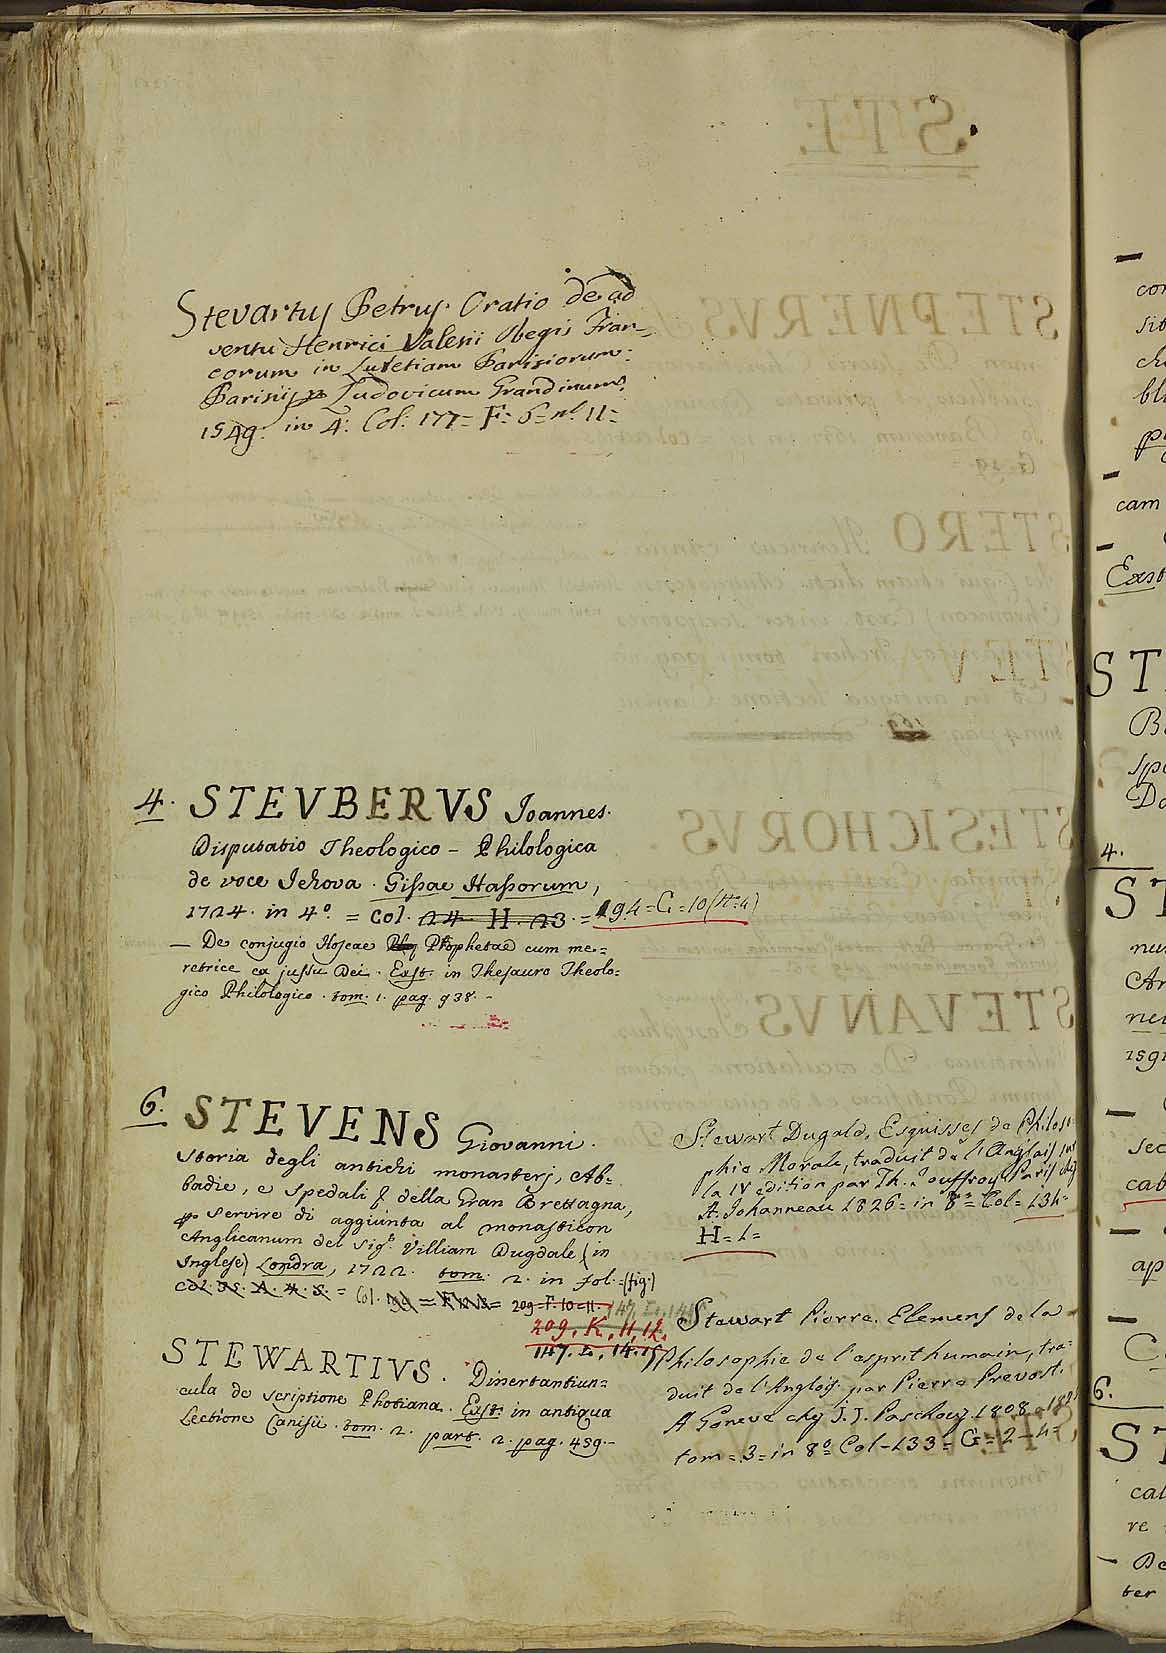 Stevartus Petrus. Oratio de ad
ventu Henrici Valesii Regis Fran-
corum in Lutetiam Parisiorum:
Parisiis Ludovicum Grandinum.
1549. in 4. Col: 177= F= 6= n.º 11=
4. STEVBERVS Joannes.
Disputatio Theologico - Philologica
de voce Jehova. Gissae Hassorum,
1724. in 4º. = Col. 24. H. 23. = 194=G=10(#4)
— De conjugio Hoseae Prophetae cum me=
retrice ex jussu Dei. Exst. in Thesauro Theolo=
gico Philologico. tom. 1. pag. 938. -
6. STEVENS Giovanni.
Storia degli antichi monasterj, Ab=
badie, e Spedali & della Gran Brettagna,
servire di aggiunta al monasticon
Anglicanum del Sig.r Villiam Dugdale (in
Inglese) Londra, 1722. tom. 2. in fol.=(fig.)
= Col. = 209=F. 10=11.
209. K. 11, 12.
147. L. 14. 15
STEWARTIVS. Dissertantiun=
cula de scriptione Photiana. Exst. in antiqua
Lectione Canisii. tom. 2. part. 2. pag. 439.-
Stewart Dugald, Esquisses de Philoso
phie Morale, traduit de l'Anglais sur
la IV edition par Th. Jouffroy Paris chez
A. Johanneau 1826= in 8º= Col= 134=
H=1=
Stewart Pierre. Elemens de la
Philosophie de l'esprit humain, tra-
duit de l'Anglois par Pierre Prevost.
A Geneve chez J. J. Paschoug. 1808
tom=3=in 8º Col-133= G=2-4=